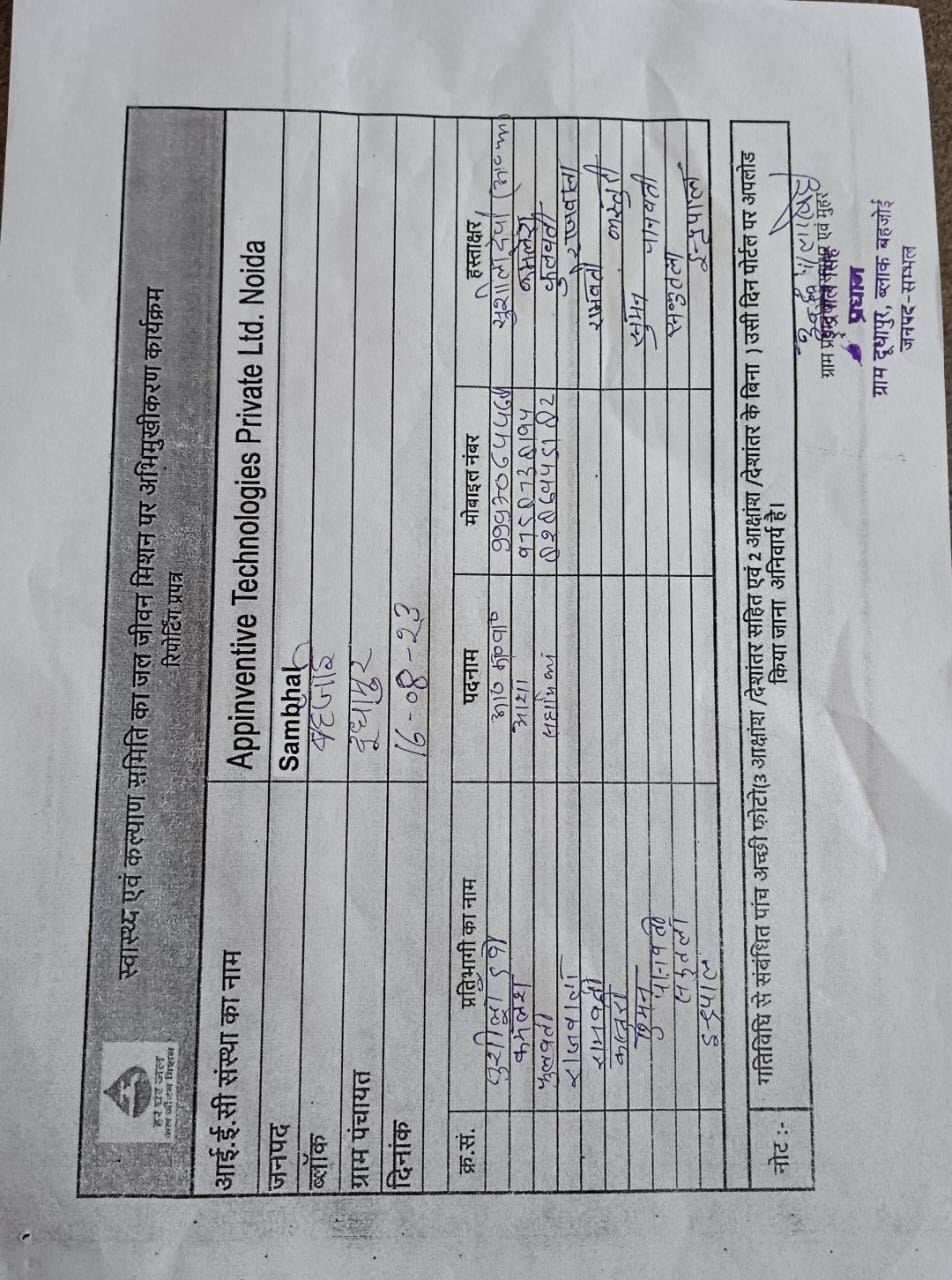 हर घर जल
जल जीवन मिशन
स्वास्थ्य एवं कल्याण समिति का जल जीवन मिशन पर अभिमुखीकरण कार्यक्रम
रिपोर्टिंग प्रपत्र
आई.ई.सी संस्था का नाम Appinventive Technologies Private Ltd. Noida
जनपद Sambhal
ब्लॉक बहजोई
ग्राम पंचायत दूधापुर
दिनांक 16-08-23
क्र.सं. प्रतिभागी का नाम पदनाम मोबाइल नंबर हस्ताक्षर
सुशीला देवी
कमलेश आशा कमलेश
फूलवती फूलवती
राजवाला राजवाला
रामवती रामवती
सुमन सुमन
पानवती पानवती
सकुतला सकुतला
इन्द्रपाल इन्द्रपाल
नोट :- गतिविधि से संबंधित पांच अच्छी फोटो(3 आक्षांश /देशांतर सहित एवं 2 आक्षांश /देशांतर के बिना ) उसी दिन पोर्टल पर अपलोड
किया जाना अनिवार्य है।
ग्राम प्रधान एवं मुहर
प्रधान
ग्राम दूधापुर, ब्लाक बहजोई
जनपद-सम्भल